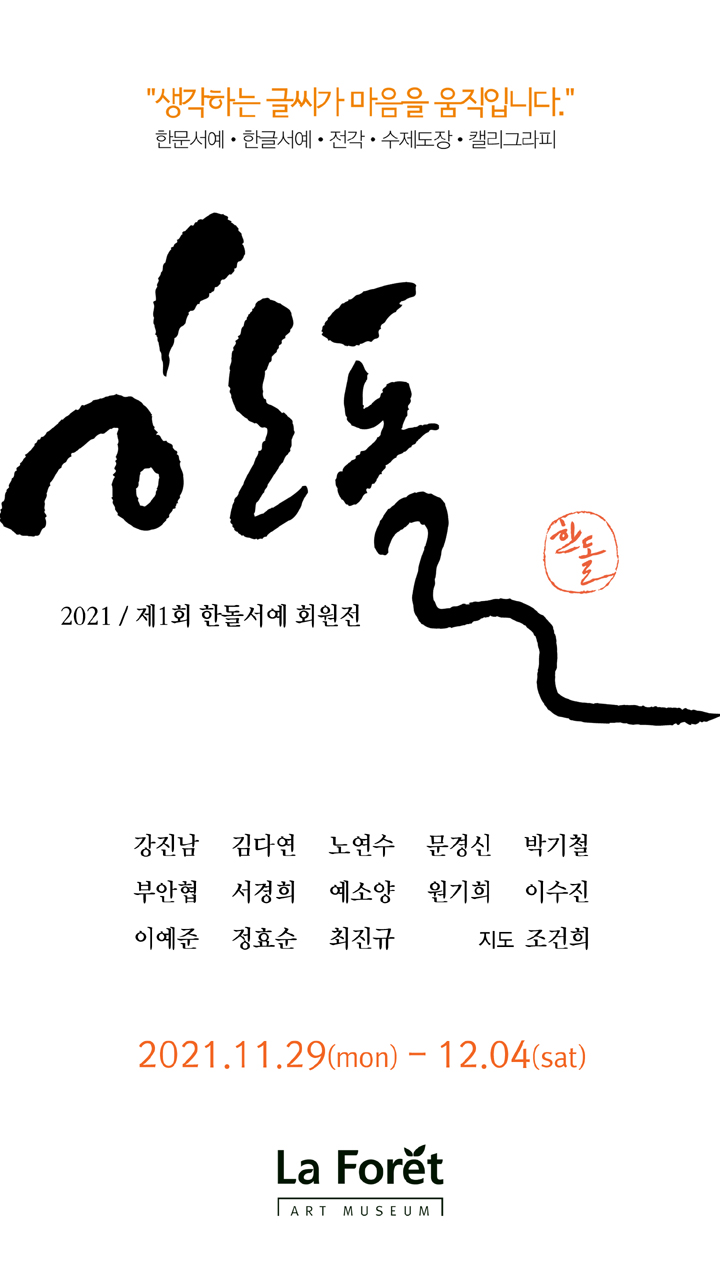 "생각하는 글씨가 마음을 움직입니다."
한문서예 • 한글서예 • 전각 • 수제도장 • 캘리그라피
한돌
한돌
2021 / 제1회 한돌서예 회원전
강진남 김다연 노연수 문경신 박기철
부안협 서경희 예소양 원기희 이수진
이예준 정효순 최진규 지도 조건희
2021.11.29(mon) – 12.04(sat)
La Forêt
ART MUSEUM